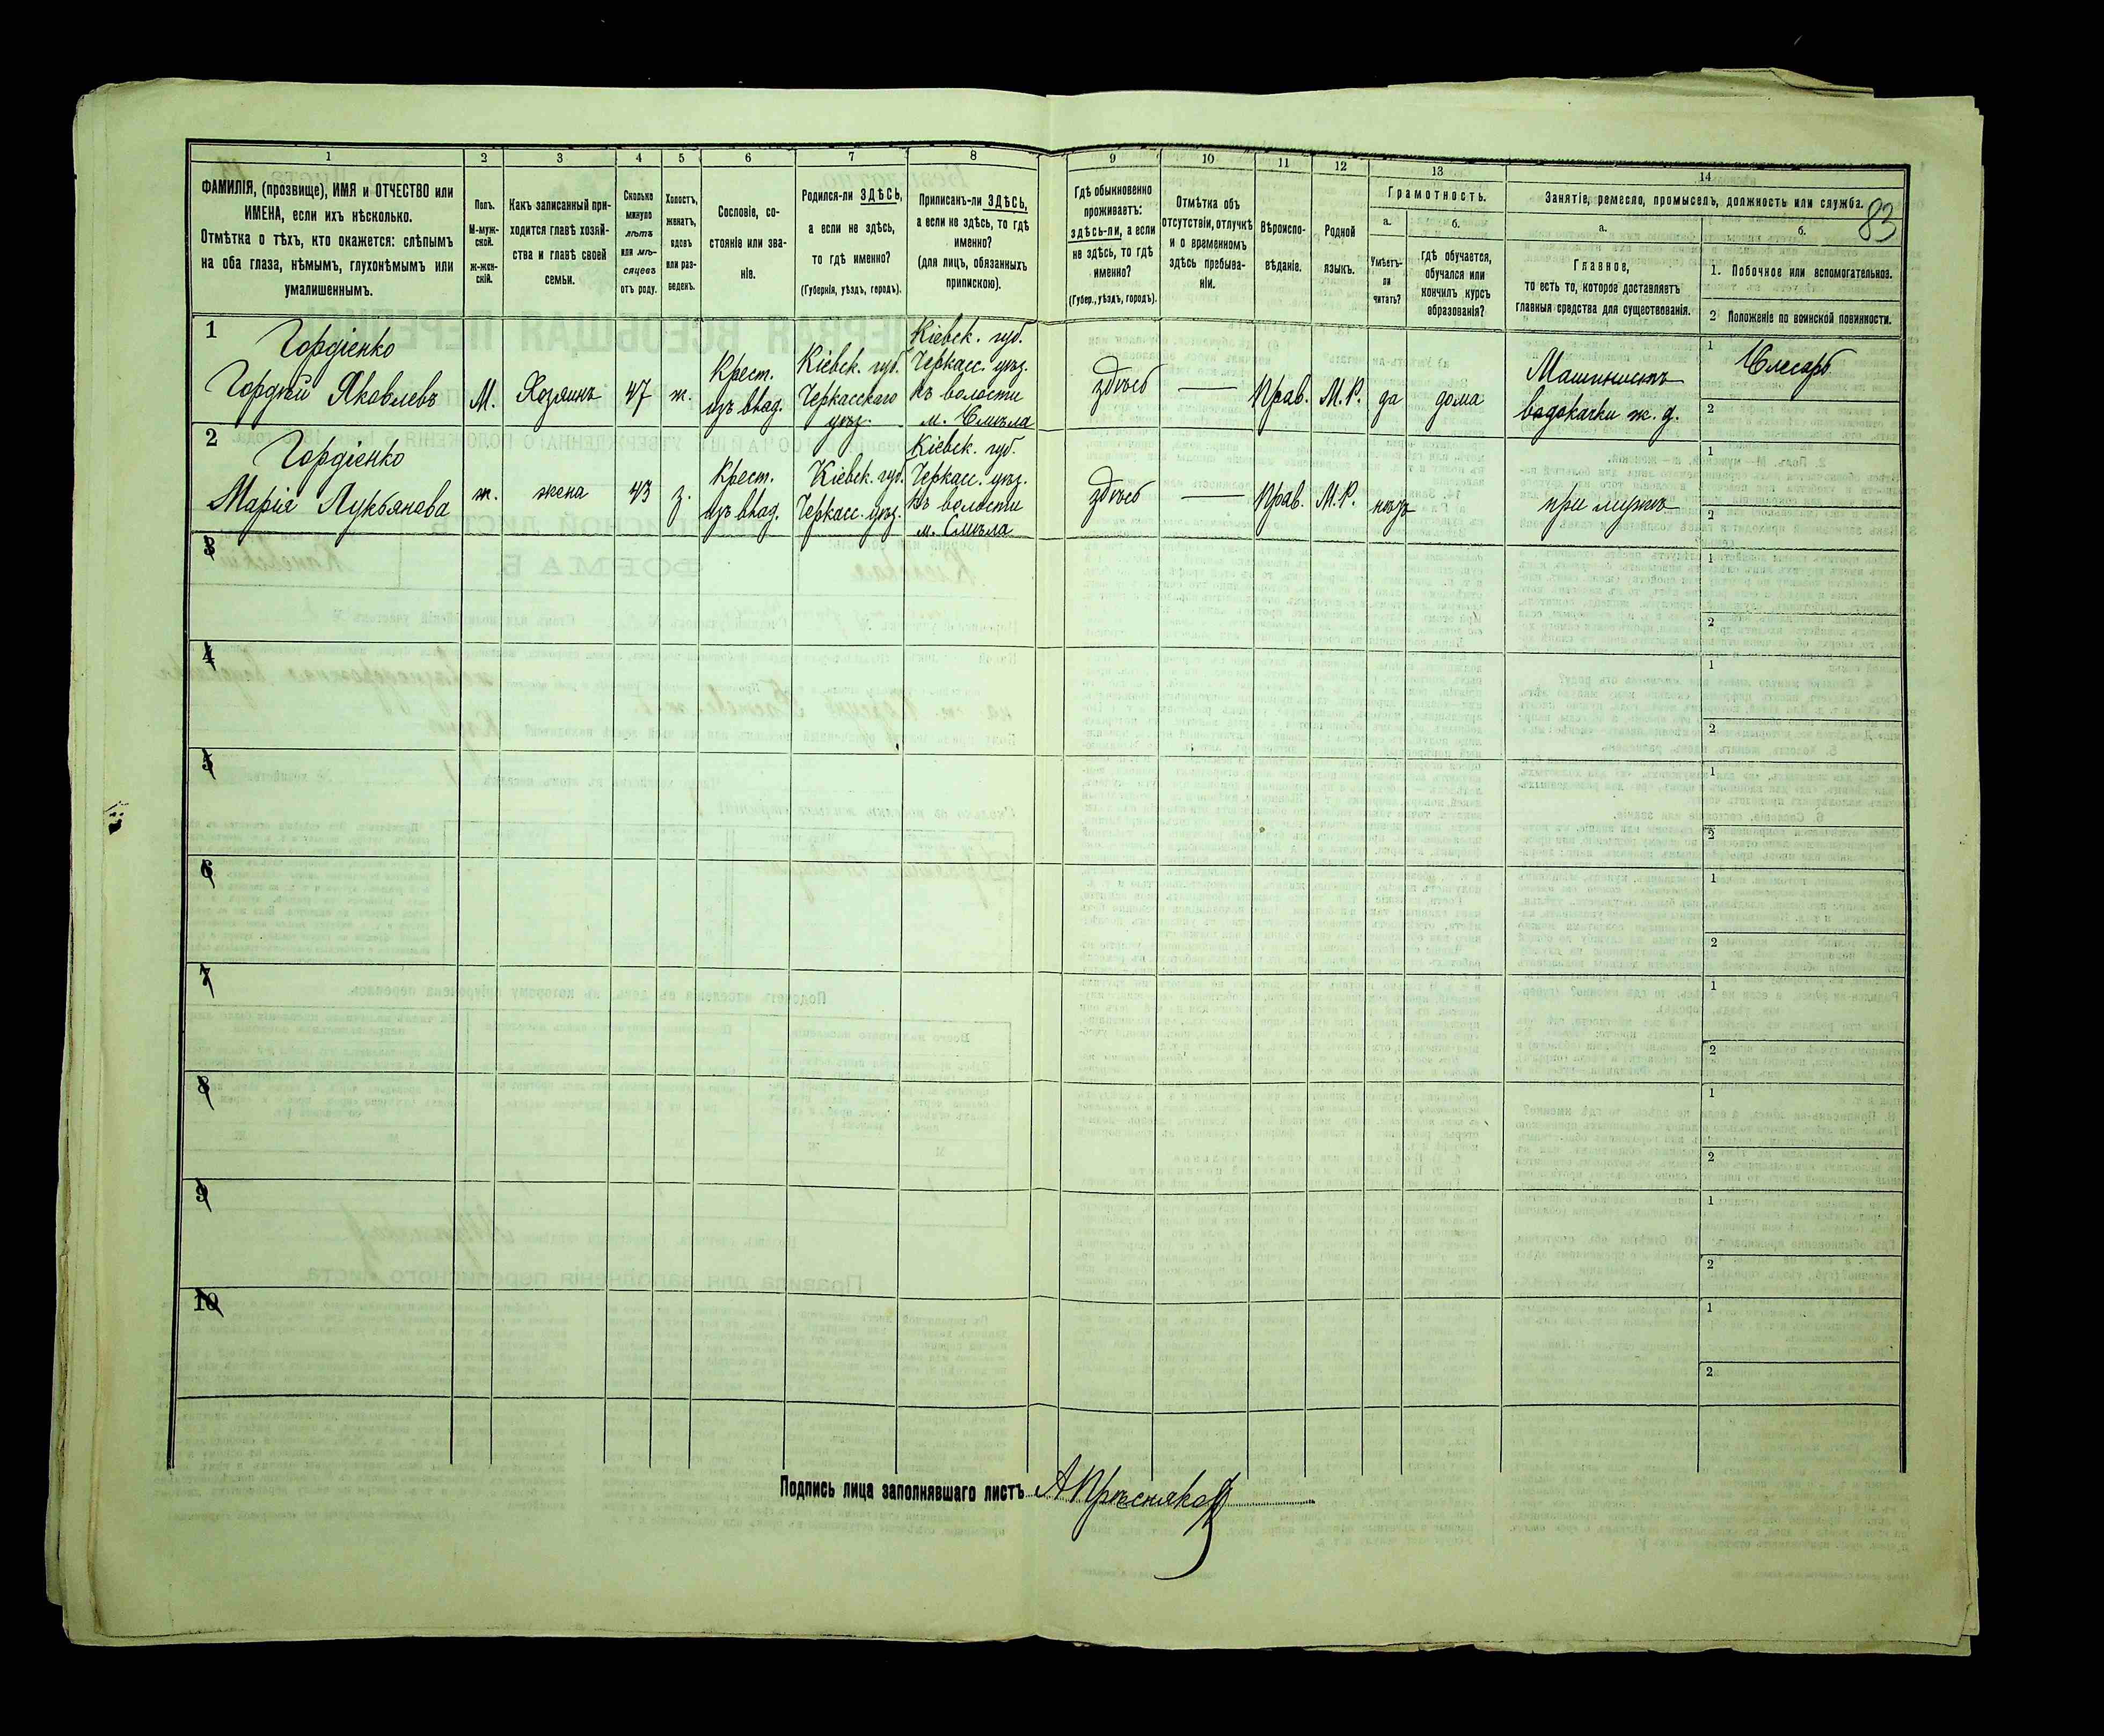 83
1 2 3 4 5 6 7 8 9 10 11 12 13 14
ФАМИЛІЯ, (прозвище), ИМЯ и ОТЧЕСТВО или
ИМЕНА, если ихъ нѣсколько.
Отмѣтка о тѣхъ, кто окажется: слѣпымъ
на оба глаза, нѣмымъ, глухонѣмымъ или
умалишеннымъ.
Полъ.
М-муж-
ской.
ж-жен-
скій.
Какъ записанный при-
ходится главѣ хозяй-
ства и главѣ своей
семьи.
Сколько
минуло
лѣтъ
или мѣ-
сяцевъ
отъ роду.
Холостъ,
женатъ,
вдовъ
или раз-
веденъ.
Сословіе, со-
стояніе или зва-
ніе.
Родился-ли ЗДѢСЬ,
а если не здѣсь,
то гдѣ именно?
(Губернія, уѣздъ, городъ).
Приписанъ-ли ЗДѢСЬ,
а если не здѣсь, то гдѣ
именно?
(для лицъ, обязанныхъ
припискою).
Гдѣ обыкновенно
проживаетъ:
здѣсь-ли, а если
не здѣсь, то гдѣ
именно?
(Губер., уѣздъ, городъ).
Отмѣтка объ
отсутствіи, отлучкѣ
и о временномъ
здѣсь пребыва-
ніи.
Вѣроиспо-
вѣданіе.
Родной
языкъ.
Грамотность.
а.
Умѣетъ-
ли
читать?
б.
гдѣ обучается,
обучался или
кончилъ курсъ
образованія?
Занятіе, ремесло, промыселъ, должность или служба.
а.
Главное,
то есть то, которое доставляетъ
главныя средства для существованія.
б.
1. Побочное или вспомогательное.
2 Положеніе по воинской повинности.
1
Гордіенко
Гордѣй Яковлевъ
М.
Хозяинъ
47
ж.
Крест.
изъ влад.
Кіевск. губ.
Черкасскаго
уѣз.
Кіевск. губ.
Черкасс. уѣз.
къ волости
м. Смѣла
здѣсь
—
Прав.
М.Р.
да
дома
Машинистъ
водокачки ж. д.
1 Слесарь
2
2
Гордіенко
Марія Лукьянова
ж.
жена
43
з.
Крест.
изъ влад.
Кіевск. губ.
Черкасс. уѣз.
Кіевск. губ.
Черкасс. уѣз.
къ волости
м. Смѣла
здѣсь
—
Прав.
М.Р.
нѣтъ
при мужѣ
1
2
3
1
2
4
1
2
5
1
2
6
1
2
7
1
2
8
1
2
9
1
2
10
1
2
Подпись лица заполнявшаго листъ А Прѣсняковъ